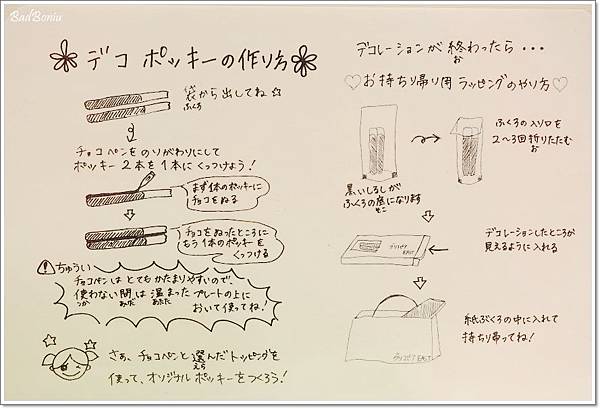 BadBoniu
デコ ポッキーの作り方
袋から出してね☆
ふくろ
チョコペンをのりがわりにして
ポッキー2本を1本にくっつけよう!
まず1本のポッキーに
チョコをぬる
チョコをぬったところに
もう1本のポッキーを
くっつける
ちゅうい
チョコペンはとてもかたまりやすいので、
使わない間は温まったプレートの上に
つか あいだ あたた
おいて使ってね!
さぁ、チョコペンと選んだトッピングを
えら
使って、オリジナルポッキーをつくろう!
デコレーションが終わったら・・・
お
♡お持ち帰り用ラッピングのやり方♡
ふくろの入り口を
2〜3回折りたたむ
お
黒いしるしが
ふくろの底になります
そこ
デコレーションしたところが
見えるように入れる
グリコピア
EAST
紙ぶくろの中に入れて
持ち帰ってね!
グリコピア EAST